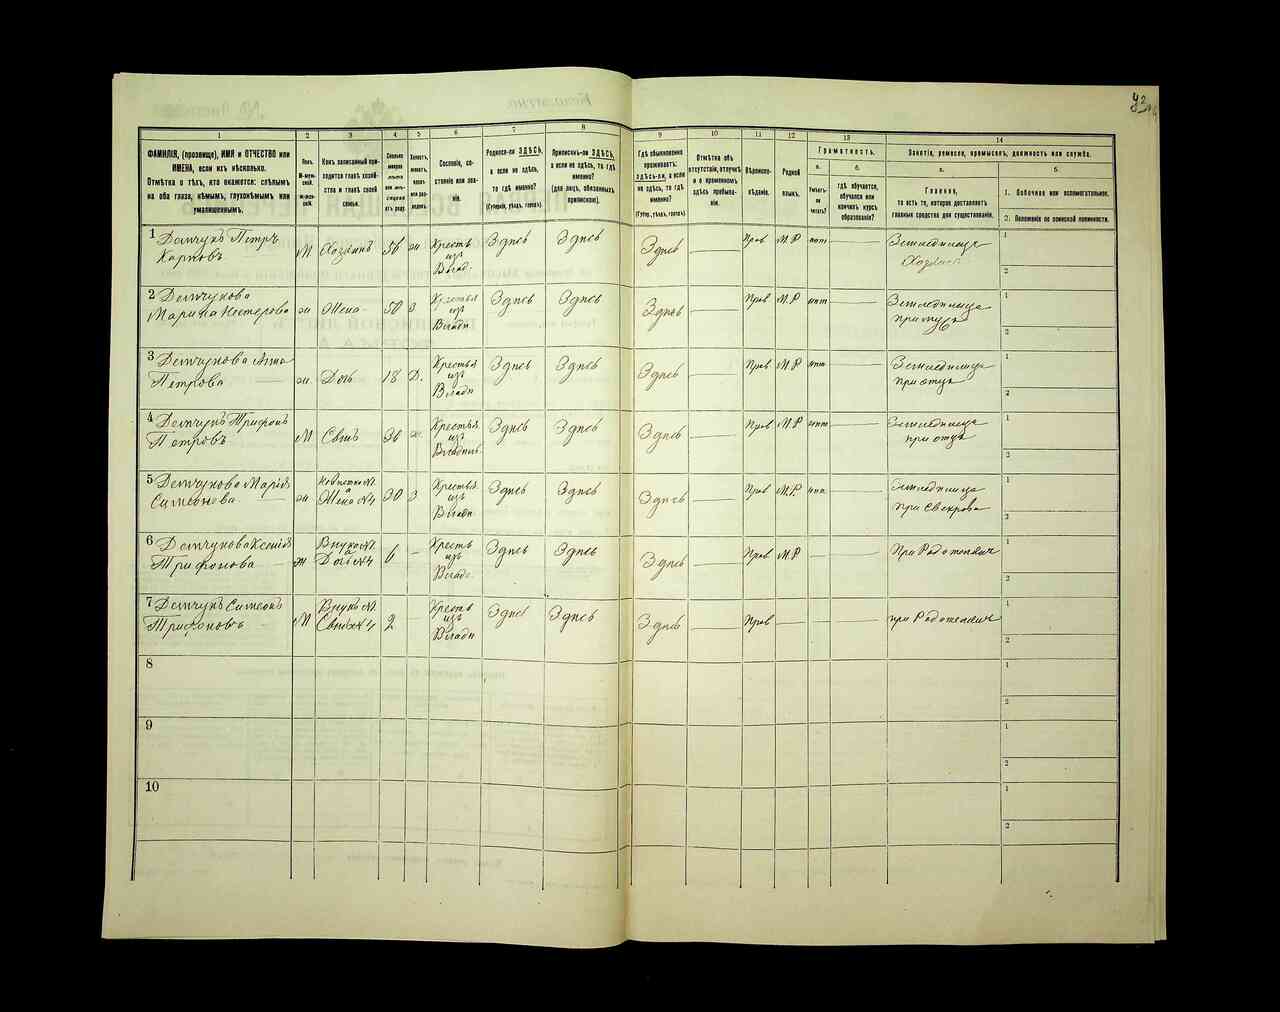 1
2
3
4
5
6
7
8
9
10
11
12
13
14
ФАМИЛІЯ, (прозвище), ИМЯ и ОТЧЕСТВО или
ИМЕНА, если ихъ нѣсколько.
Отмѣтка о тѣхъ, кто окажется: слѣпымъ
на оба глаза, нѣмымъ, глухонѣмымъ или
умалишеннымъ.
Полъ.
М-муж-
ской.
ж-жен-
скій.
Какъ записанный при-
ходится главѣ хозяй-
ства и главѣ своей
семьи.
Сколько
минуло
лѣтъ
или мѣ-
сяцевъ
отъ роду.
Холостъ,
женатъ,
вдовъ
или раз-
веденъ.
Сословіе, со-
стояніе или зва-
ніе.
Родился-ли ЗДѢСЬ,
а если не здѣсь,
то гдѣ именно?
(Губернія, уѣздъ, городъ).
Приписанъ-ли ЗДѢСЬ,
а если не здѣсь, то гдѣ
именно?
(для лицъ, обязанныхъ
припискою).
Гдѣ обыкновенно
проживаетъ:
здѣсь-ли, а если
не здѣсь, то гдѣ
именно?
(Губерн., уѣздъ, городъ).
Отмѣтка объ
отсутствіи, отлучкѣ
и о временномъ
здѣсь пребыва-
ніи.
Вѣроиспо-
вѣданіе.
Родной
языкъ.
Грамотность.
а.
Умѣетъ-
ли
читать?
б.
гдѣ обучается,
обучался или
кончилъ курсъ
образованія?
Занятіе, ремесло, промыселъ, должность или служба.
а.
Главное,
то есть то, которое доставляетъ
главныя средства для существованія.
б.
1. Побочное или вспомогательное.
2. Положеніе по воинской повинности.
1 Демчукъ Петръ
Карповъ М Хозяинъ 56 ж Крестья изъ Владп. Здѣсь Здѣсь Здѣсь Прав М.Р нѣт Земледѣлецъ
Хозяинъ
1
2
2 Демчукова
Марина Нестерова ж Жена 50 З Крестья изъ Владп Здѣсь Здѣсь Здѣсь Прав М.Р нѣт Земледѣлица
при мужѣ
1
2
3 Демчукова Анна
Петрова ж Дочь 18 Д. Крестья изъ Владп Здѣсь Здѣсь Здѣсь Прав М.Р нѣт Земледѣлица
при отцѣ
1
2
4 Демчукъ Трифонъ
Петровъ М Сынъ 36 ж. Крестья изъ Здѣсь Здѣсь Здѣсь Прав М.Р нѣт Земледѣлица
при отцѣ
1
2
5 Демчукова Марія
Симеонова ж Невѣстка №1
а Жена №4 30 З Крестья изъ Владп Здѣсь Здѣсь Здѣсь Прав М.Р. нѣт Земледѣлица
при Свекрова
1
2
6 Демчукова Ксенія
Трифонова ж Внука №1
а Дочь №4 6 Кресть изъ Владп. Здѣсь Здѣсь Здѣсь Прав М.Р При Родителяхъ
1
2
7 Демчукъ Симеонъ
Трифоновъ М Внукъ №1
Сынъ №4 2 Кресть изъ Владп Здѣсь Здѣсь Здѣсь Прав при Родителяхъ
1
2
8
1
2
9
1
2
10
1
2